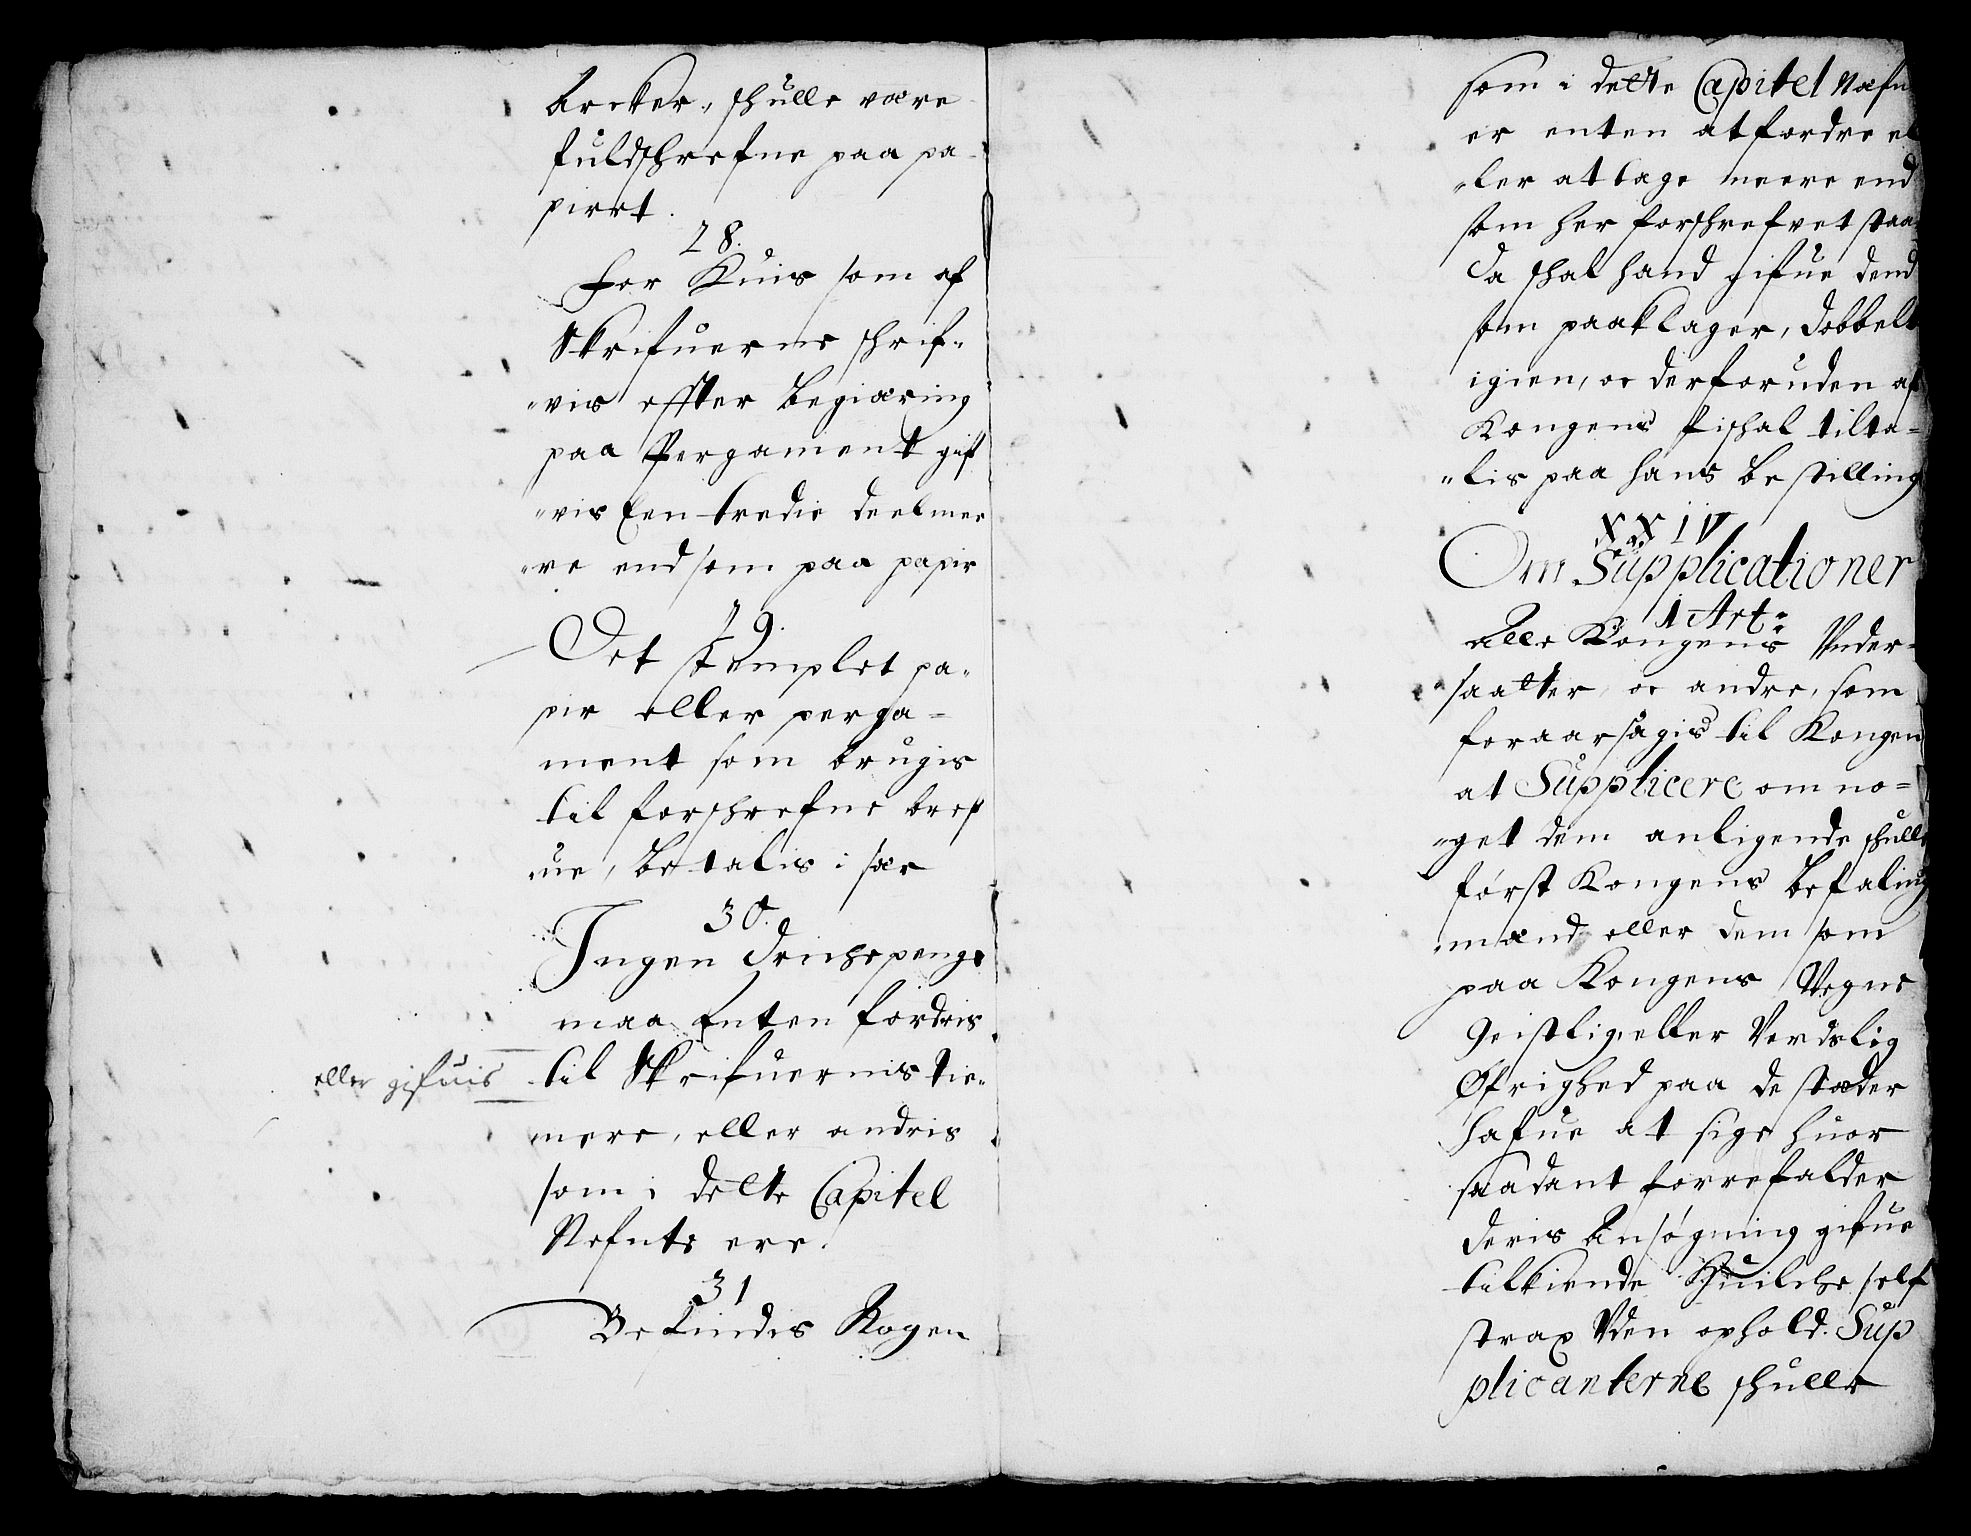 Arcker, skulle være
fuldskrefne paa pa-
piret.
28.
For Huis som af
Skrifuerne schrif-
vis effter begiæring
paa Pergament gif
vis Een tredie deel mee
re end som paa papir
29.
Det stemplet pa-
pir eller perga-
ment som brugis
til forschrefne bref
ue, betalis i sær
30.
Ingen drickepenge
maa Enten fordris
eller gifuis
til Skrifuernis tie-
nere, eller andris
som i dette Capitel
Nefnte ere.
31
Befindis Nogen
som i dette Capitel Næfn
er enten at fordre el
ler at tage meere end
som her forschrefvet staa
Da skal hand gifue dend
som paaklager, dobbelt
igien, oc derforuden af
Kongens fiskal tilta-
lis paa hans bestilling
XXIV
Om Supplicationer
1 Art:
Alle Kongens Vnder-
saatter oc andre, som
foraarsagis til Kongen
at Supplicere om no-
get dem anligende skulle
først Kongens befaling
mænd eller dem som
paa Kongens Vegne
Geistlig eller Verdslig
Øfrighed paa de stæder
hafue at sige huor
saadant forrefalder
deris Ansøgning gifue
tilkiende Huilche self
strax Vden ophold. Sup
plicanterne skulle